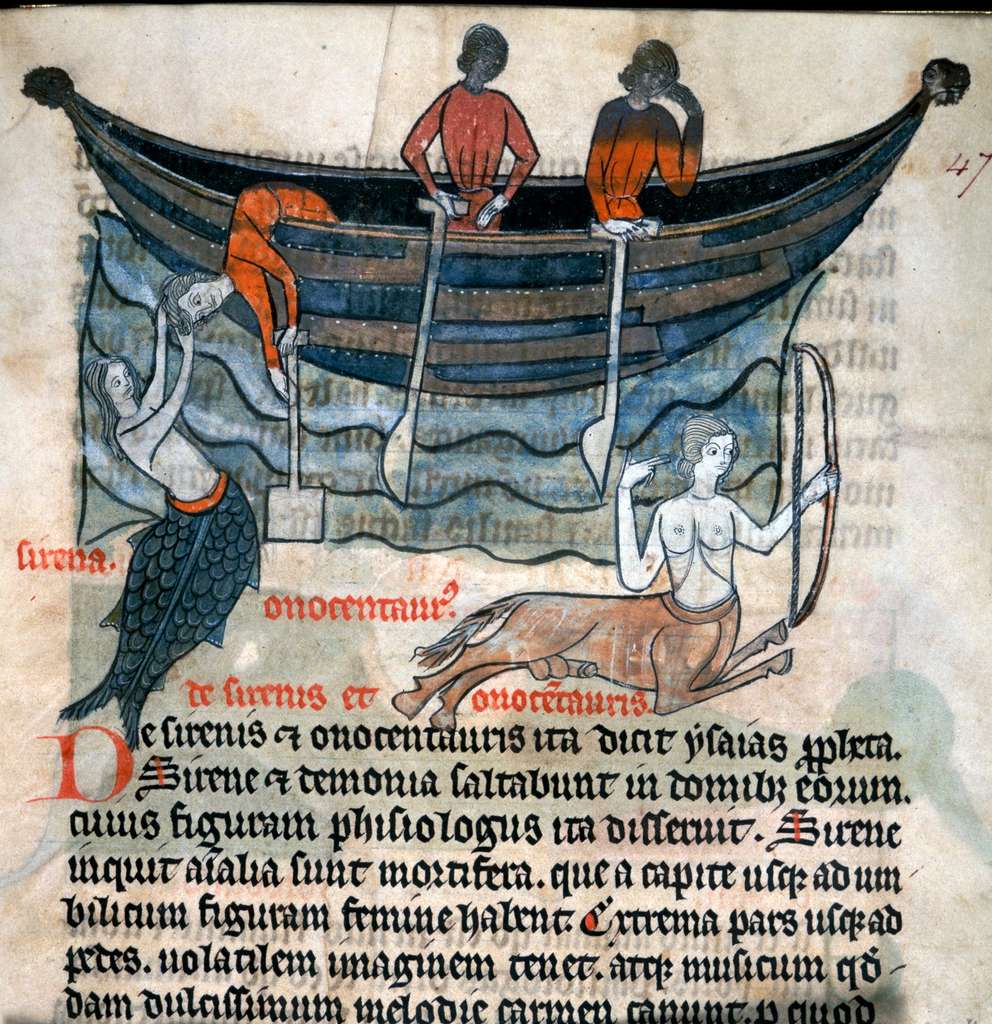 47
sirena.
onocentaurꝰ.
de sirenis et onocētauris.
De sirenis ⁊ onocentauris ita dicit ysaias ꝓpheta.
Sirene ⁊ demonia saltabunt in domibꝫ eorum.
cuius figuram phisiologus ita disseruit. Sirene
inquit aīalia sunt mortifera. que a capite usqꝫ ad um
bilicum figuram femine habent. Extrema pars usqꝫ ad
pedes. uolatilem imaginem tenet. atqꝫ musicum qd̄-
dam dulcissimum melodie carmen canunt. ꝑ quod